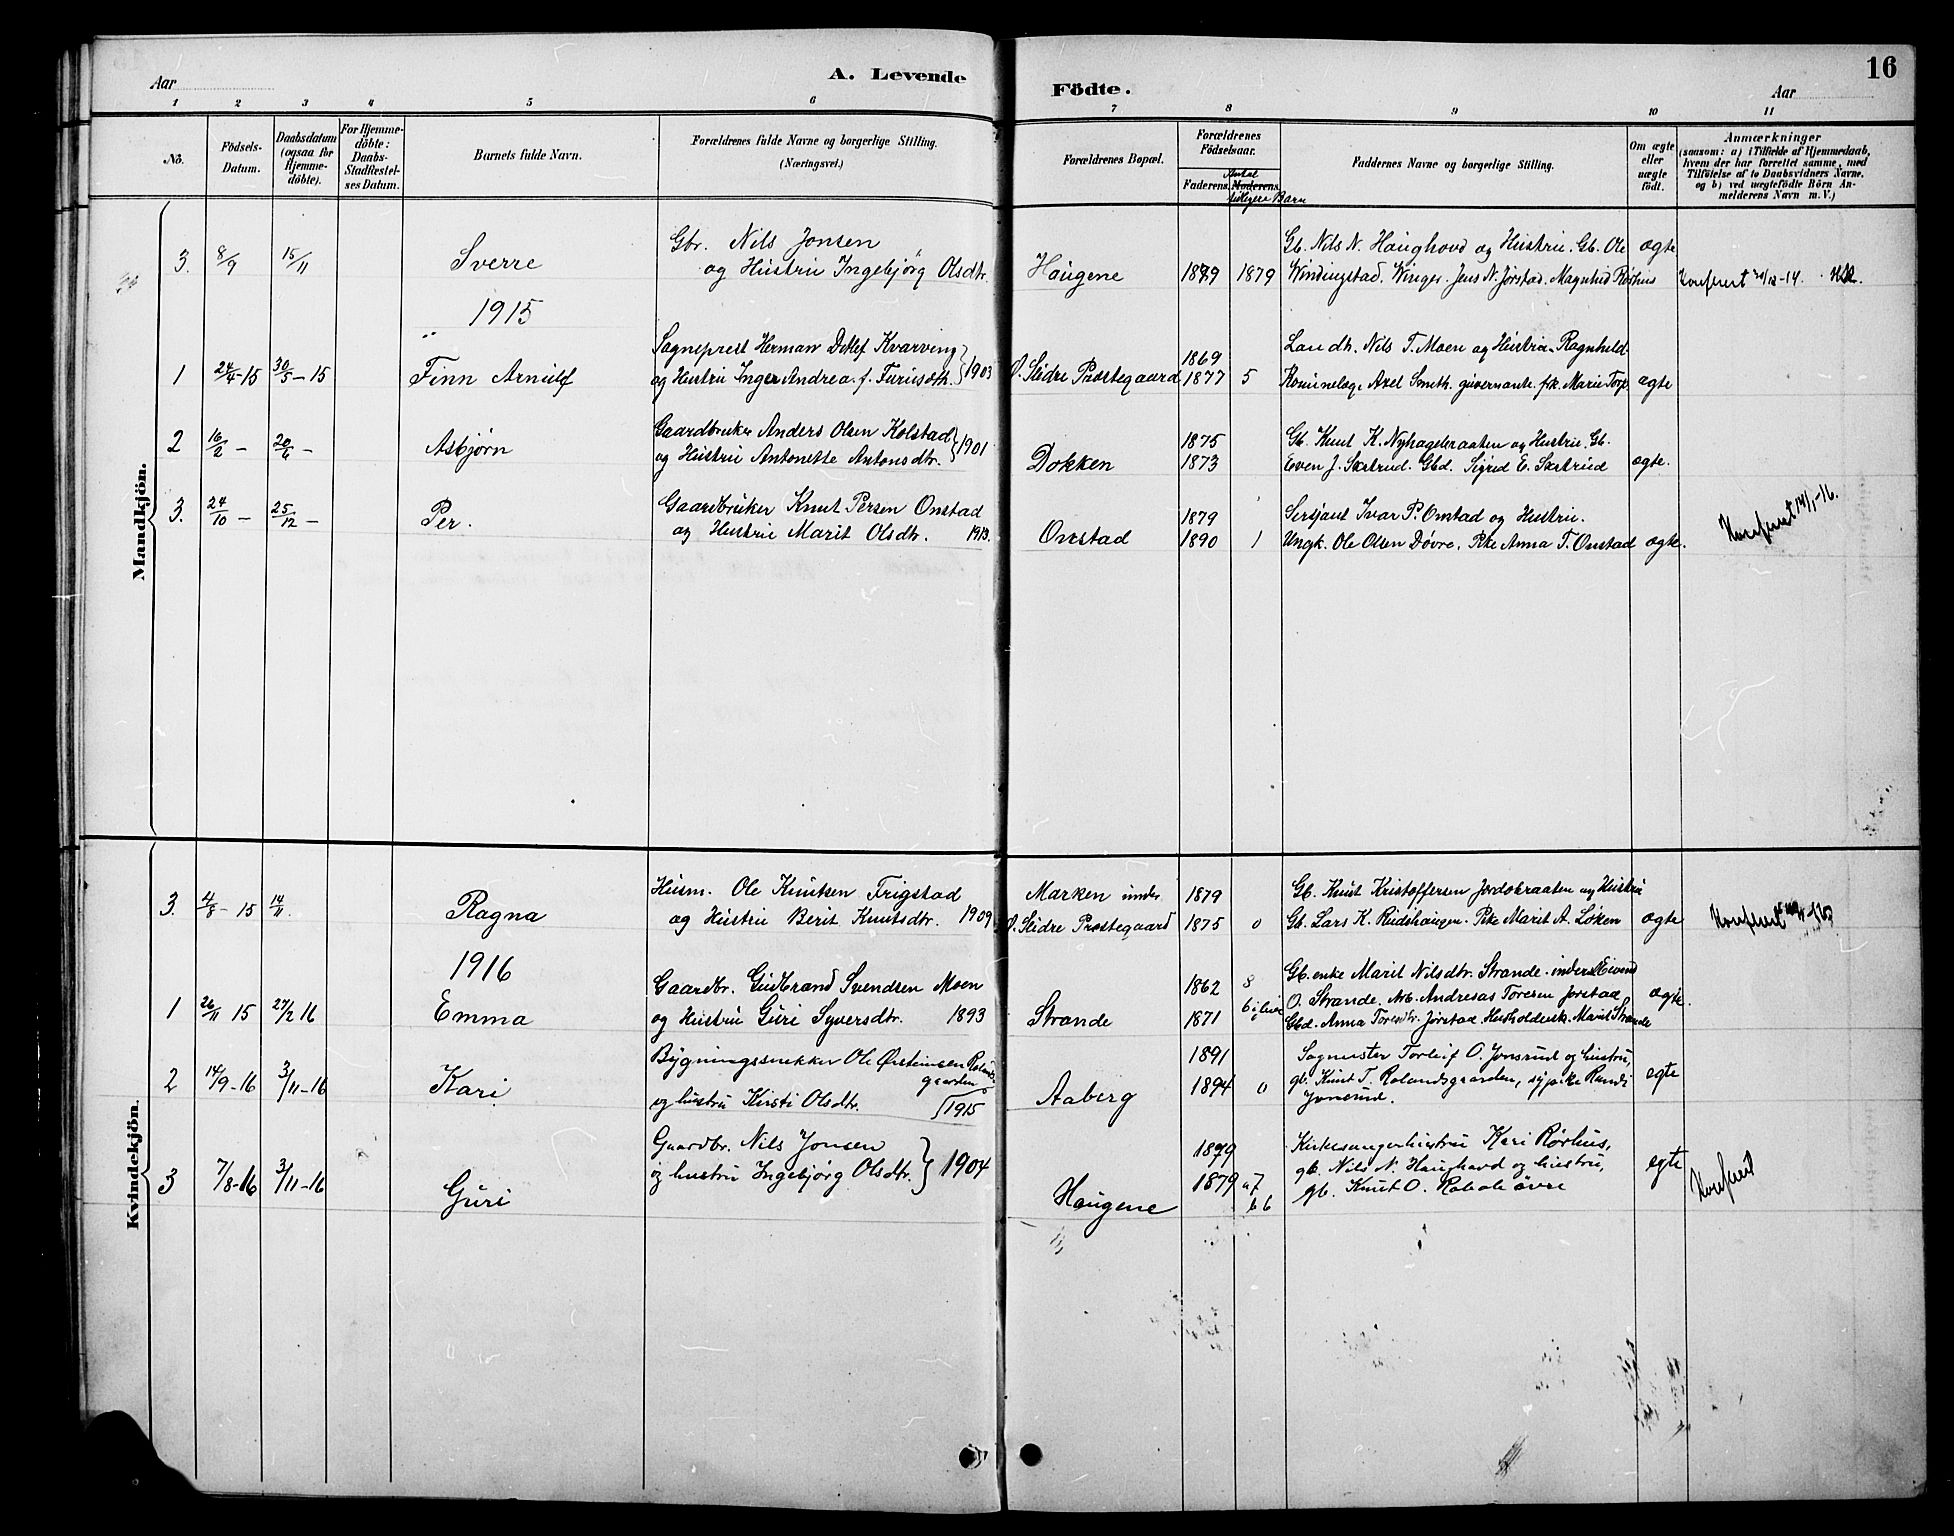 Aar
A. Levende
Födte.
Aar
16
1 2 3 4 5 6 7 8 9 10 11
No.
Födsels-
Datum.
Daabsdatum
(ogsaa for
Hjemme-
döbte).
For Hjemme-
döbte:
Daabs-
Stadfæstel-
ses Datum.
Barnets fulde Navn.
Forældrenes fulde Navne og borgerlige Stilling.
(Næringsvei.)
Forældrenes Bopæl.
Forældrenes
Födselsaar.
Faderens.
Antal
Moderens.
tidligere Barn
Faddernes Navne og borgerlige Stilling.
Om ægte
eller
uægte
födt.
Anmærkninger
(saasom: a) i Tilfælde af Hjemmedaab,
hvem der har forrettet samme, med
Tilföielse af to Daabsvidners Navne,
og b) ved uægtefödte Börn An-
melderens Navn m. V.)
Mandkjön.
3. 8/9 15/11 Sverre
Gbr. Nils Jonsen
og Hustru Ingebjørg Olsdtr.
Haugene 1879 1879
Gb. Nils N. Haughovd og Hustru. Gb. Ole
Windingstad. Winger. Jens N. Jørstad. Magnhild Rørhus
ægte
Konferert 14.
1915
1 24/4-15 30/5-15 Finn Arnulf
Sogneprest Herman Detlef Kvarving
og Hustru Inger Andrea f. Furusdth. } 1903
Ø. Slidre Præstegaard
1869
1877 5
Landh. Nils T. Moen og Hustru Ragnhild
Komunelæge Axel Smith. guvernante. frk. Marie Torp
ægte
2 16/2 - 20/6 - Asbjørn
Gaardbruker Anders Olsen Kolstad
og Hustru Antonette Antonsdtr. } 1901
Dokken
1875
1873
Gb. Knut K. Nyhagebraaten og Hustru. Gb.
Even J. Skrtrud. Gbd. Sigrid E. Skrtrud
ægte.
3. 24/10 - 25/12 - Per.
Gaardbruker Knut Persen Onstad
og Hustru Marit Olsdtr. 1913.
Onstad
1879
1890 1
Sersjant Ivar P. Onstad og Hustru.
Ungk. Ole Olsen Døvre. Pike Anna T. Onstad
ægte.
Konferert 14/1-16.
Kvindekjön.
3. 4/8-15 14/11. Ragna
Husm. Ole Knutsen Frigstad
og Hustru Berit Knutsdtr. 1909
Marken under
Ø. Slidre Præstegaard
1879
1875 0
Gb. Knut Kristoffersen Jordobraaten og Hustru
Gb. Lars K. Rudshaugen. Pike Marit A. Løken
ægte
Konferert
1916
1 26/11 15 27/2 16 Emma
Gaardbr. Gudbrand Svendsen Moen
og Hustru Guri Syversdtr. 1893
Strande
1862 8
1871 6 i live
Gb. enke Marit Nilsdtr. Strande. inders. Eivind
O. Strande. Arb. Andreas Toresen Jørstad
Gbd. Anna Toresdtr. Jørstad. Husholdersk. Marit Strande
ægte.
2 14/9-16 3/11-16 Kari
Bygningssnekker Ole Østensen Rolands-
gaarden
og hustru Kirsti Olsdtr. 1915
Aaberg
1891
1894 0
Sagmester Torleif O. Jonsrud og hustru,
gb. Knut T. Rolandsgaarden, sypike Randi
Jonsrud.
egte
3 7/8-16 3/11-16 Guri
Gaardbr. Nils Jonsen
og hustru Ingebjørg Olsdtr. } 1904
Haugene
1879
1879 a 7
b 6
Kirkesangerhustru Kari Rørhus,
gb. Nils N. Haughovd og hustru,
gb. Knut O. Robøle øvre
egte
Konferert